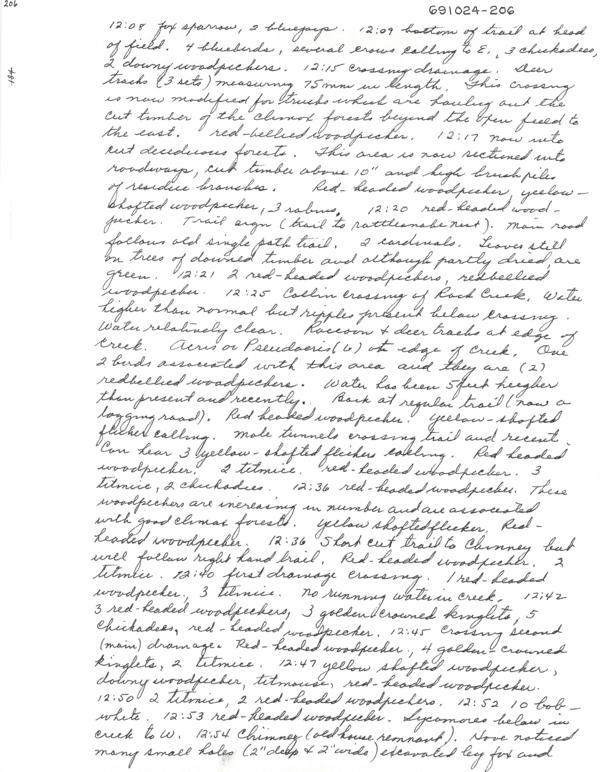 206
691024-206
184
12:08 fox sparrow, 2 bluejays. 12:09 bottom of trail at head
of field. 4 bluebirds, several crows calling to E., 3 chickadees,
2 downy woodpeckers. 12:15 crossing drainage. Deer
tracks (3 sets) measuring 75mm in length. This crossing
is now modified for trucks which are hauling out the
cut timber of the climax forests beyond the open field to
the east. red-bellied woodpecker. 12:17 now into
cut deciduous forests. This area is now sectioned into
roadways, cut timber above 10" and high brush piles
of residue branches. Red-headed woodpecker, yellow-
shafted woodpecker, 3 robins. 12:20 red-headed wood-
pecker. Trail sign (trail to rattlesnake nest). Main road
follows old single path trail. 2 cardinals. Leaves still
on trees of downed timber and although partly dried are
green. 12:21 2 red-headed woodpeckers, redbellied
woodpecker. 12:25 Catlin crossing of Rock Creek. Water
higher than normal but ripples present below crossing.
Water relatively clear. Raccoon & deer tracks at edge of
creek. Acris or Pseudacris (6) at edge of creek. One
2 birds associated with this area and they are (2)
redbellied woodpeckers. Water has been 5 feet heigher
than present and recently. Back at regular trail (now a
logging road). Red headed woodpecker. Yellow-shafted
flicker calling. Mole tunnels crossing trail and recent.
Can hear 3 yellow-shafted flickers calling. Red headed
woodpecker. 2 titmice. red-headed woodpecker. 3
titmice, 2 chickadees. 12:36 red-headed woodpecker. These
woodpeckers are increasing in number and are associated
with good climax forests. Yellow shafted flicker, Red-
headed woodpecker. 12:36 Short cut trail to Chimney but
will follow right hand trail. Red-headed woodpecker. 2
titmice. 12:40 first drainage crossing. 1 red-headed
woodpecker, 3 titmice. No running water in creek. 12:42
3 red-headed woodpeckers, 3 golden-crowned kinglets, 5
chickadees, red-headed woodpecker. 12:45 Crossing second
(main) drainage. Red-headed woodpecker, 4 golden-crowned
kinglets, 2 titmice. 12:47 yellow shafted woodpecker,
downy woodpecker, titmouse, red-headed woodpecker.
12:50 2 titmice, 2 red-headed woodpeckers. 12:52 10 bob-
white. 12:53 red-headed woodpecker. Sycamores below in
creek to W. 12:54 Chimney (old house remnant). Have noticed
many small holes (2" deep & 2" wide) excavated by fox and